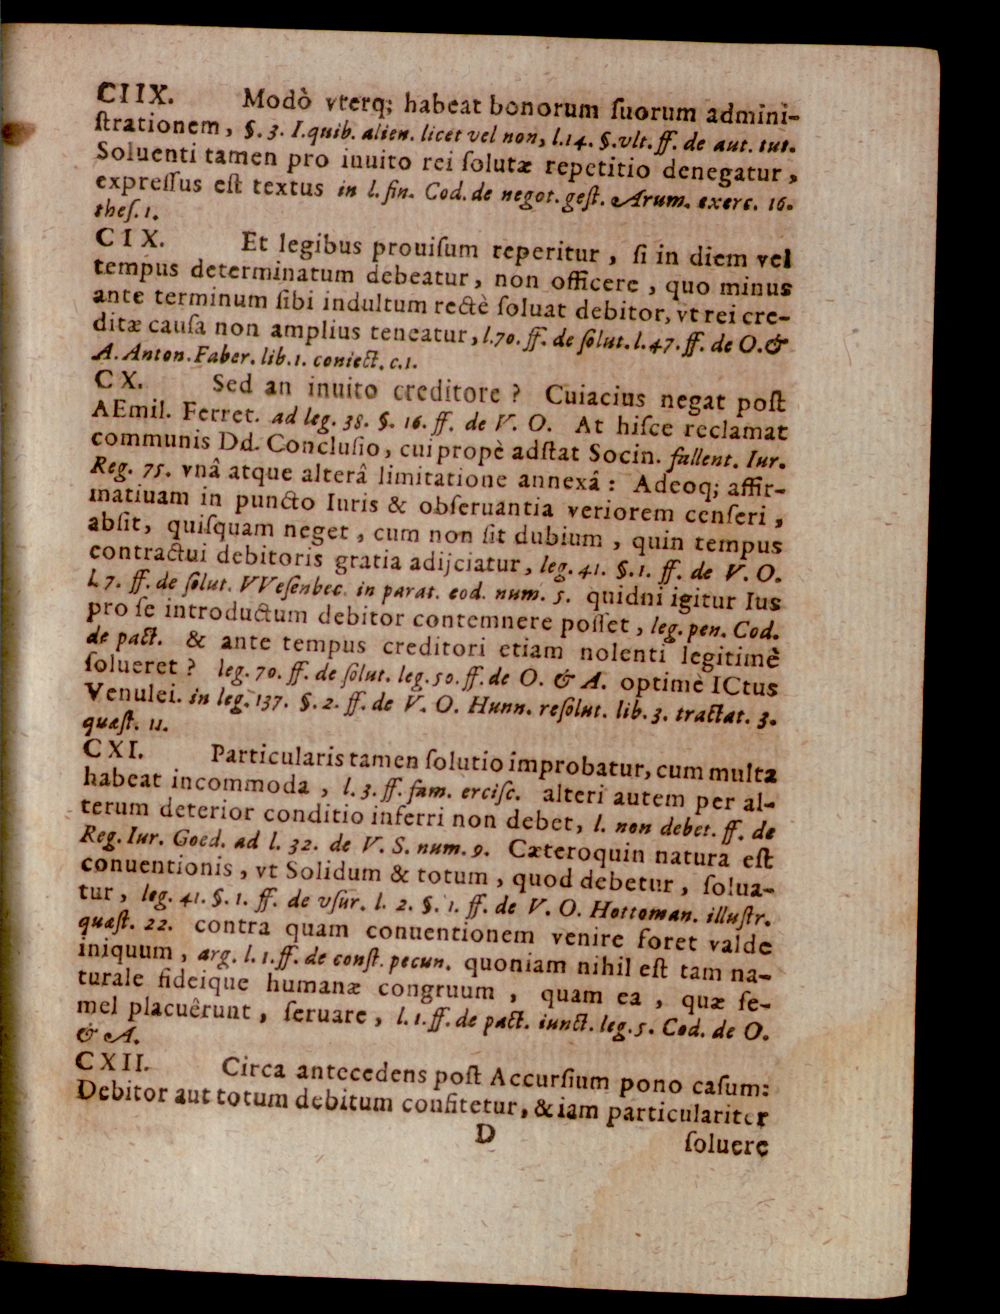 CIIX. Modò vterq; habeat bonorum ſuorum admini-
ſtrationem, §. 3. I. quib. alien. licet vel non, l. 14. §. vlt. ff. de aut. tut.
Soluenti tamen pro inuito rei ſolutæ repetitio denegatur,
expreſſus eſt textus in l. fin. Cod. de negot. geſt. Arum. exerc. 16.
theſ. 1.
CIX. Et legibus prouiſum reperitur, ſi in diem vel
tempus determinatum debeatur, non officere, quo minus
ante terminum ſibi indultum rectè ſoluat debitor, vt rei cre-
ditæ cauſa non amplius teneatur, l. 70. ff. de ſolut. l. 47. ff. de O. &
A. Anton. Faber. lib. 1. coniect. c. 1.
CX. Sed an inuito creditore? Cuiacius negat poſt
AEmil. Ferret. ad leg. 38. §. 16. ff. de V. O. At hiſce reclamat
communis Dd. Concluſio, cui propè adſtat Socin. fallent. Iur.
Reg. 75. vnâ atque alterâ limitatione annexâ: Adeoq; affir-
matiuam in puncto Iuris & obſeruantia veriorem cenſeri,
abſit, quiſquam neget, cum non ſit dubium, quin tempus
contractui debitoris gratia adijciatur, leg. 41. §. 1. ff. de V. O.
l. 7. ff. de ſolut. VVeſenbec. in parat. eod. num. 5. quidni igitur Ius
pro ſe introductum debitor contemnere poſſet, leg. pen. Cod.
de pact. & ante tempus creditori etiam nolenti legitimè
ſolueret? leg. 70. ff. de ſolut. leg. 50. ff. de O. & A. optimè ICtus
Venulei. in leg. 137. §. 2. ff. de V. O. Hunn. reſolut. lib. 3. tractat. 3.
quæſt. 11.
CXI. Particularis tamen ſolutio improbatur, cum multa
habeat incommoda, l. 3. ff. fam. erciſc. alteri autem per al-
terum deterior conditio inferri non debet, l. non debet. ff. de
Reg. Iur. Goed. ad l. 32. de V. S. num. 9. Cæteroquin natura eſt
conuentionis, vt Solidum & totum, quod debetur, ſolua-
tur, leg. 41. §. 1. ff. de vſur. l. 2. §. 1. ff. de V. O. Hottoman. illuſtr.
quæſt. 22. contra quam conuentionem venire foret valde
iniquum, arg. l. 1. ff. de conſt. pecun. quoniam nihil eſt tam na-
turale fideique humanæ congruum, quam ea, quæ ſe-
mel placuêrunt, ſeruare, l. 1. ff. de pact. iunct. leg. 5. Cod. de O.
& A.
CXII. Circa antecedens poſt Accurſium pono caſum:
Debitor aut totum debitum confitetur, & iam particulariter
D ſoluere